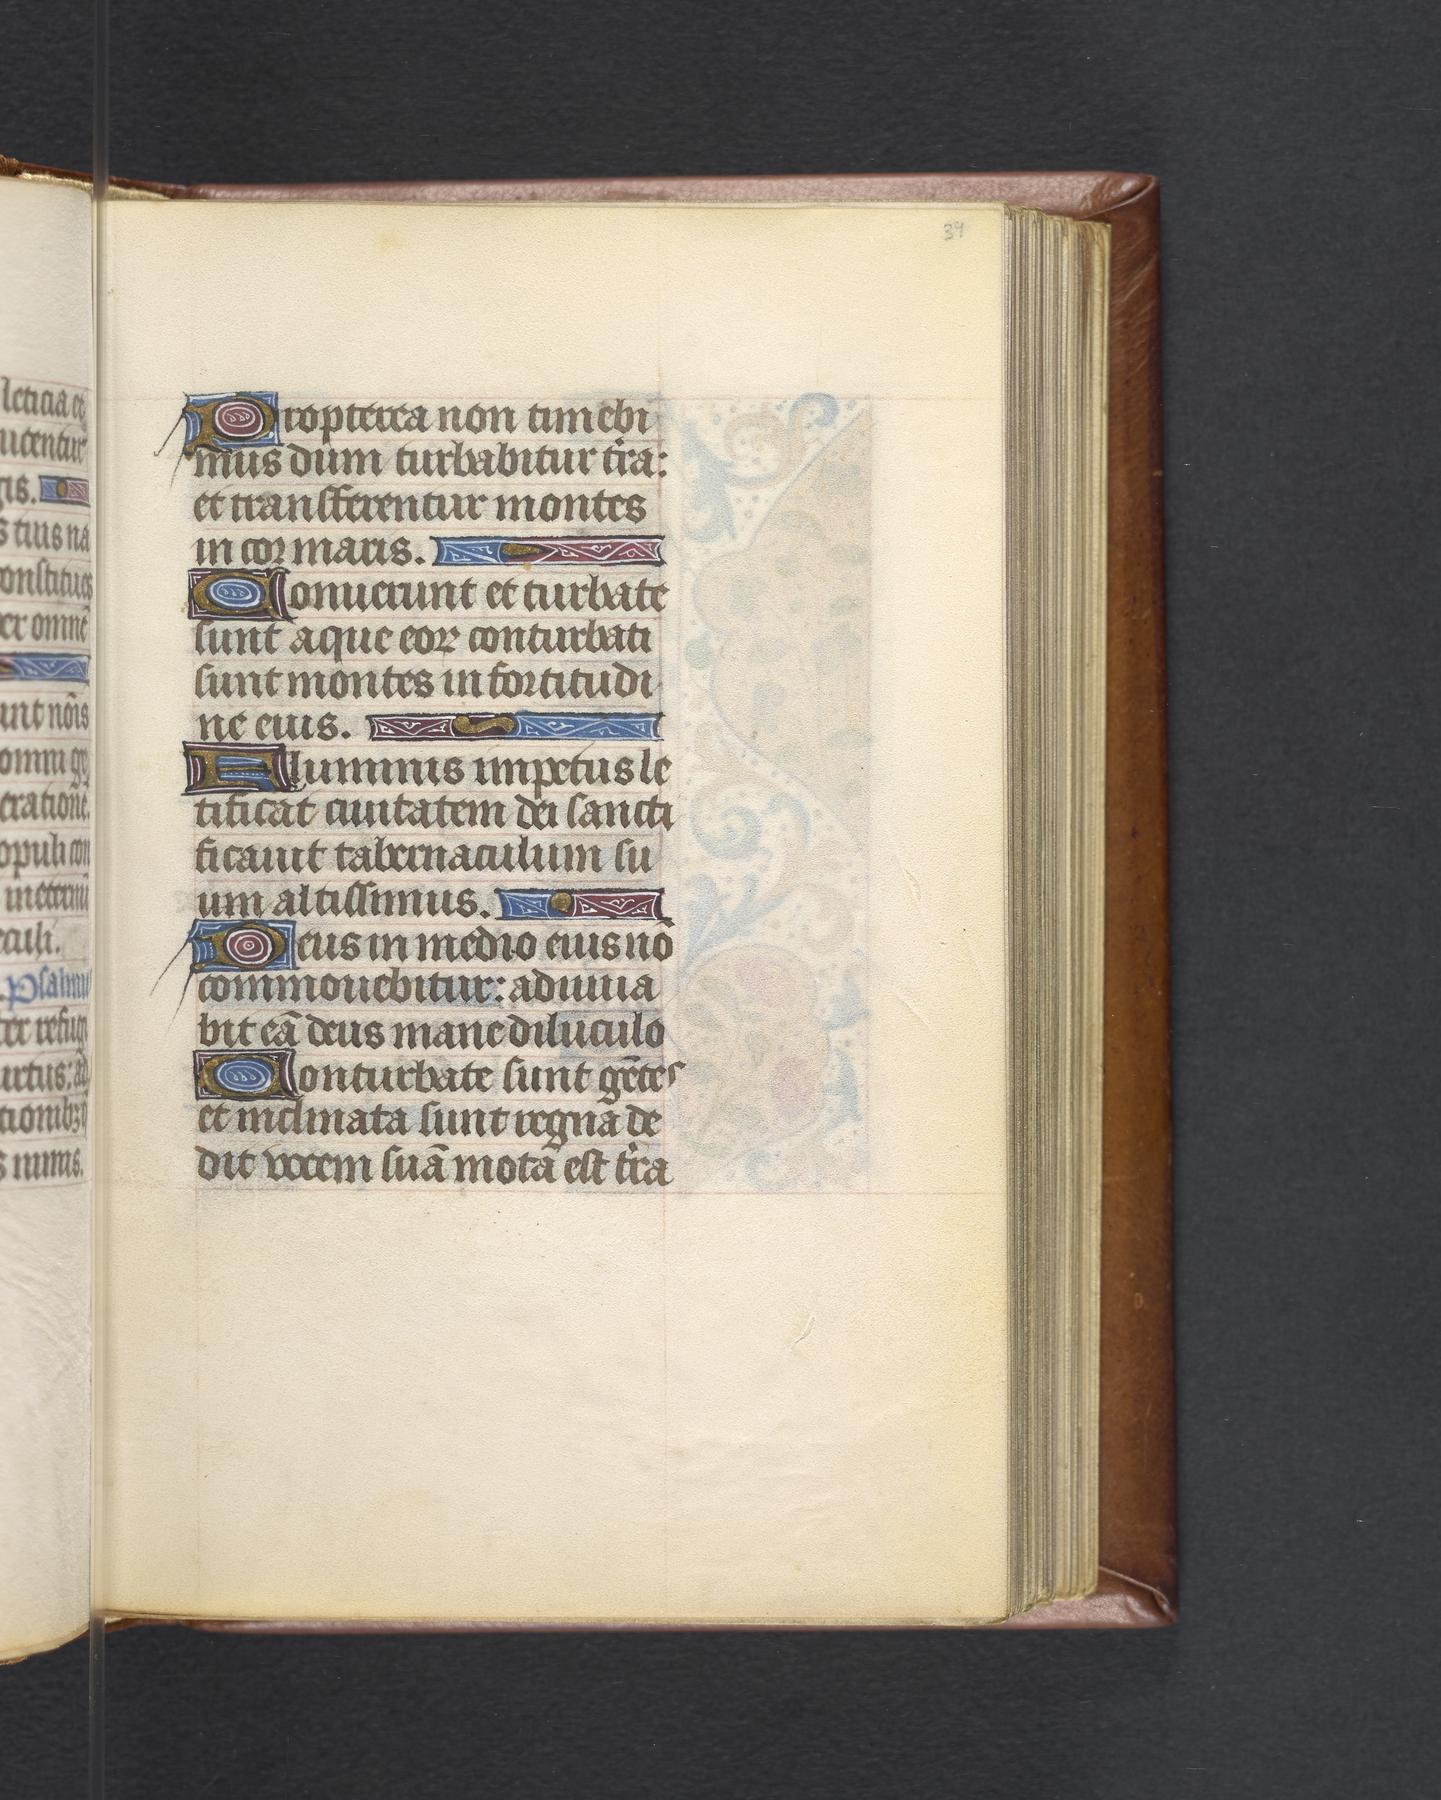 39
leticia et
ucentur
ris.
s tuis na
onstitues
er omnē
unt nōis
omni ge
eratione.
opuli con
in eternū
eculi.
Psalmus
ter refug
urtus: ad
tionibꝫ q̄
s nimis.
Propterea non timebi
mus dum turbabitur tr̄a:
et transferentur montes
in cor maris.
Sonuerunt et turbate
sunt aque eoꝝ conturbati
sunt montes in fortitudi
ne eius.
Fluminis impetus le
tificat ciuitatem dei sancti
ficauit tabernaculum su
um altissimus.
Deus in medio eius nō
commouebitur: adiuua
bit eā deus mane diluculo
Conturbate sunt gētes
et inclinata sunt regna de
dit vocem suā mota est tr̄a